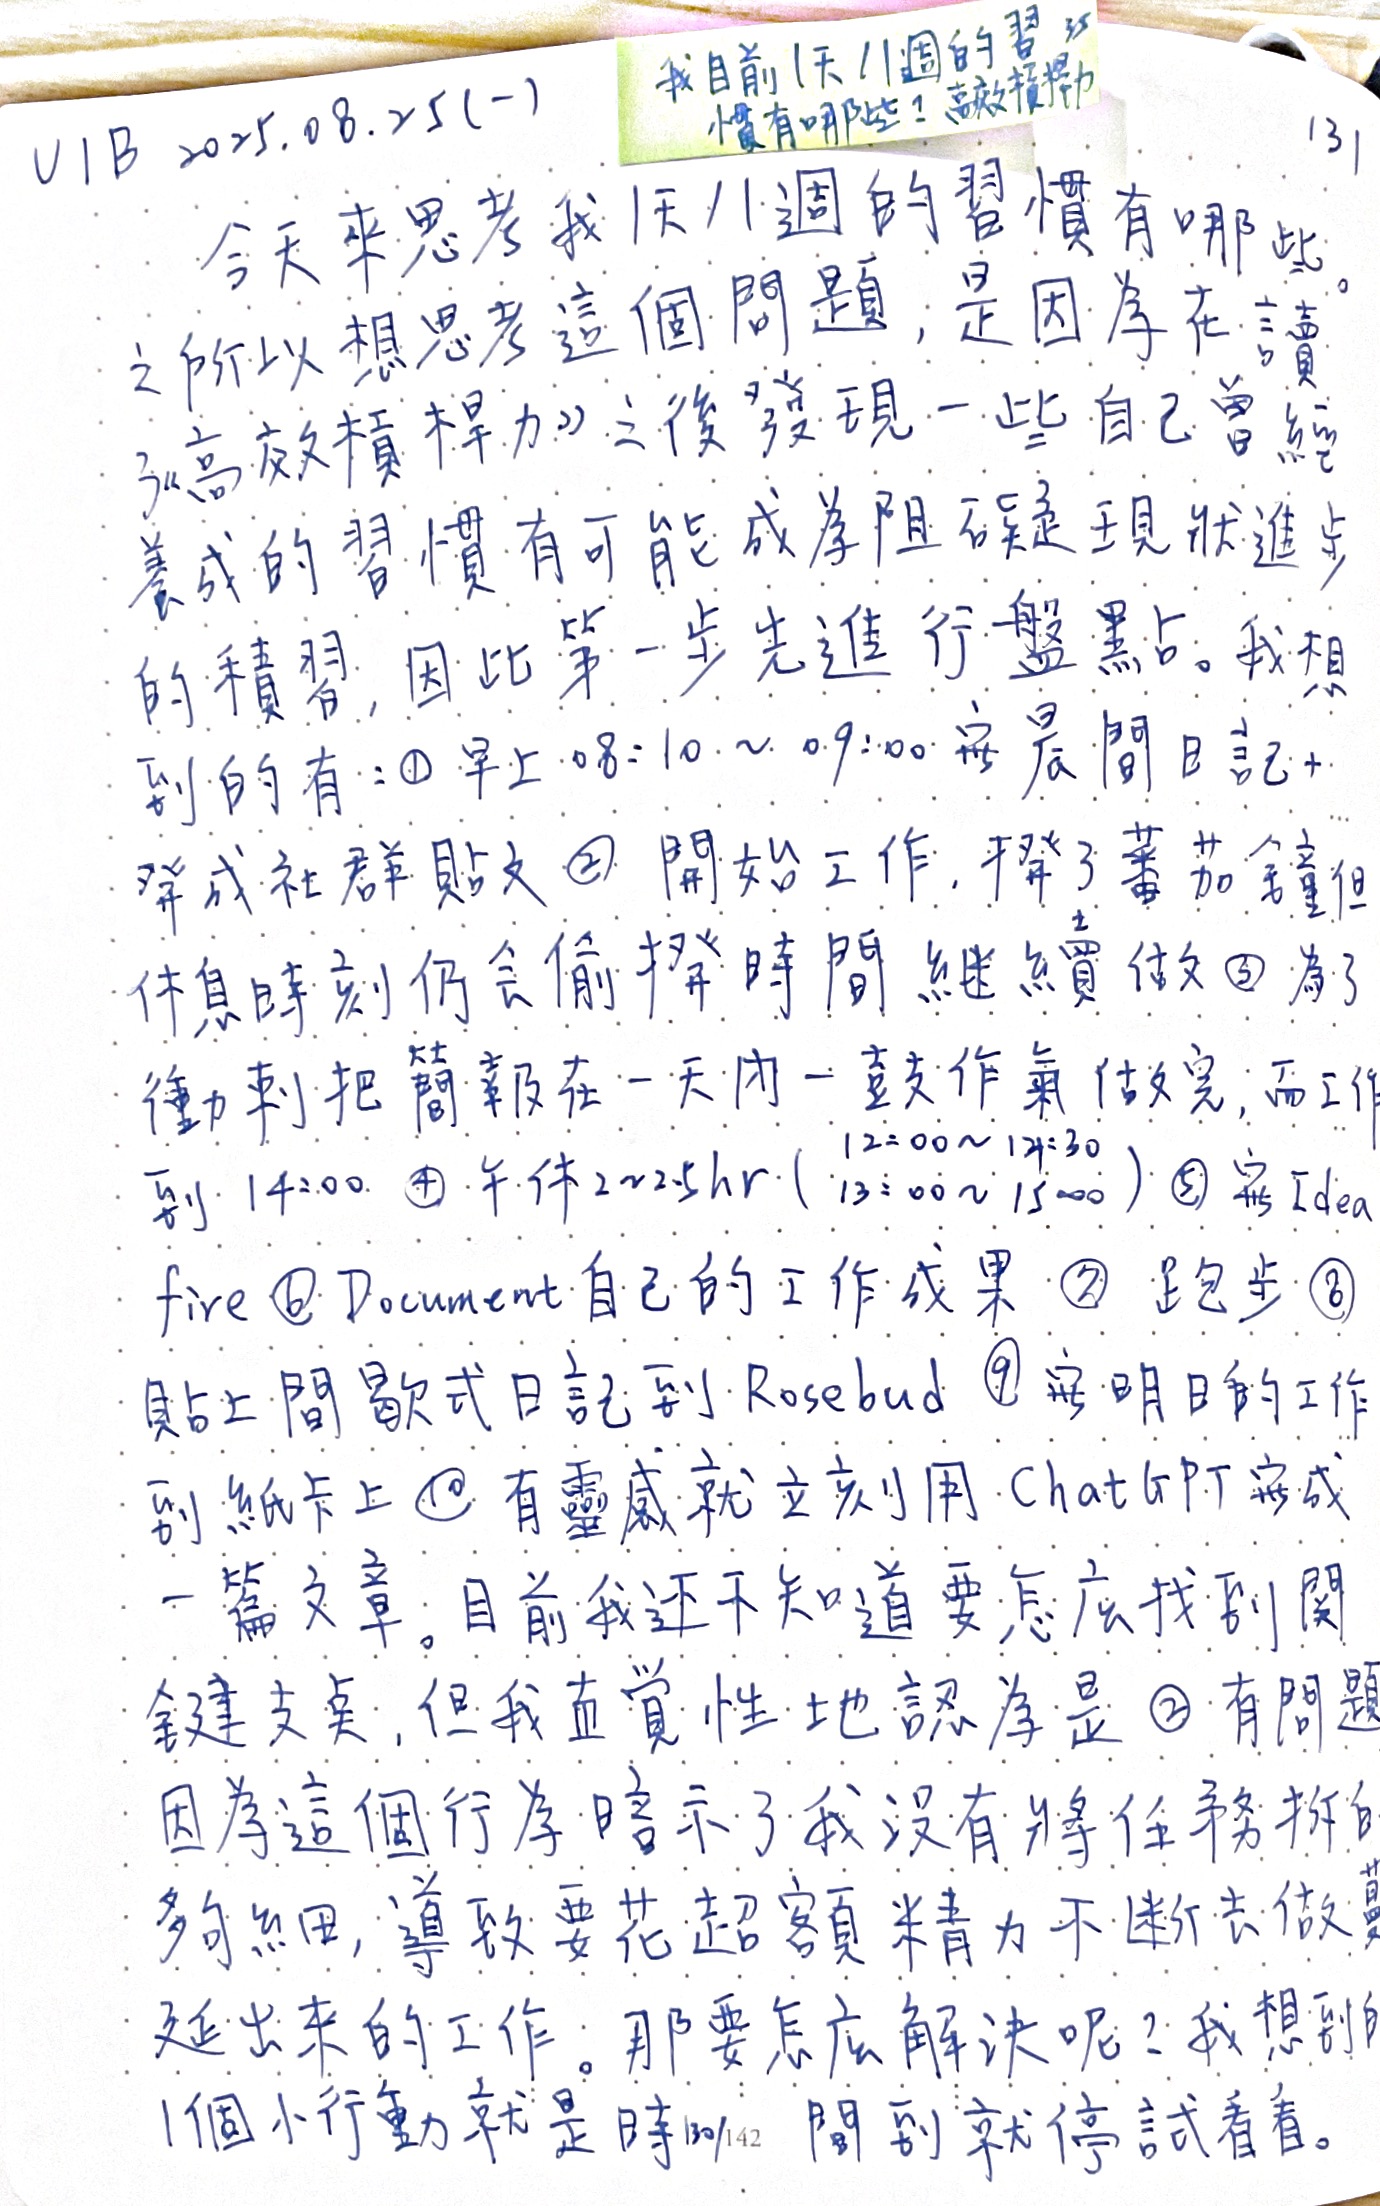 我目前1天/1週的習
慣有哪些? 高效槓桿力
V1B 2025.08.25(一)
131
今天來思考我1天/1週的習慣有哪些。
之所以想思考這個問題,是因為在讀
了《高效槓桿力》之後發現一些自己曾經
養成的習慣有可能成為阻礙現狀進步
的積習,因此第一步先進行盤點。我想
到的有:①早上08:10~09:00寫晨間日記+
發成社群貼文②開始工作,撥了蕃茄鐘但
休息時刻仍会偷撥時間継續做③為了
衝刺把簡報在一天内一鼓作氣做完,而工作
到14:00 ④午休2~2.5hr(12:00~14:30
13:00~15:00)⑤寫Idea
fire⑥Document自己的工作成果⑦跑步⑧
貼上間歇式日記到Rosebud⑨寫明日的工作
到紙卡上⑩有靈感就立刻用ChatGPT寫成
一篇文章。目前我还不知道要怎麼找到関
鍵支点,但我直覚性地認為是②有問題
因為這個行為暗示了我沒有將任務拆的
夠細,導致要花超額精力不断去做蔓
延出來的工作。那要怎麼解決呢?我想到的
1個小行動就是時間到就停試看看。
130/142